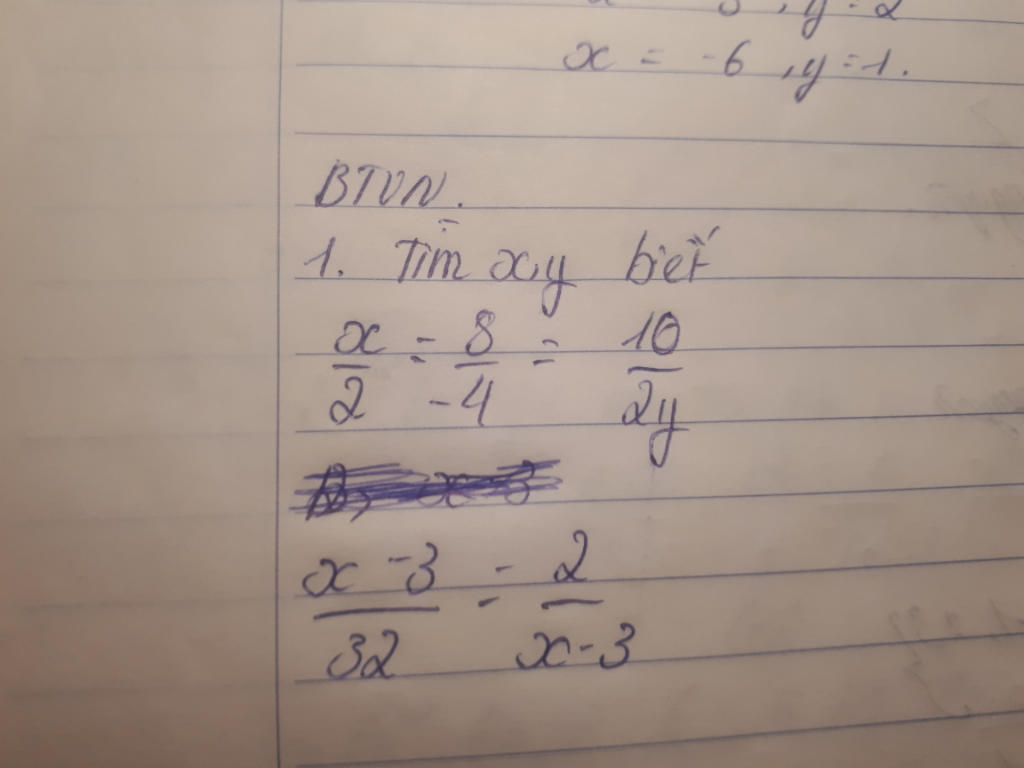 , y = 2
x = -6 , y = 1.
BTVN.
1. Tìm x,y biết
x/2 = 8/-4 = 10/2y
x-3/32 = 2/x-3